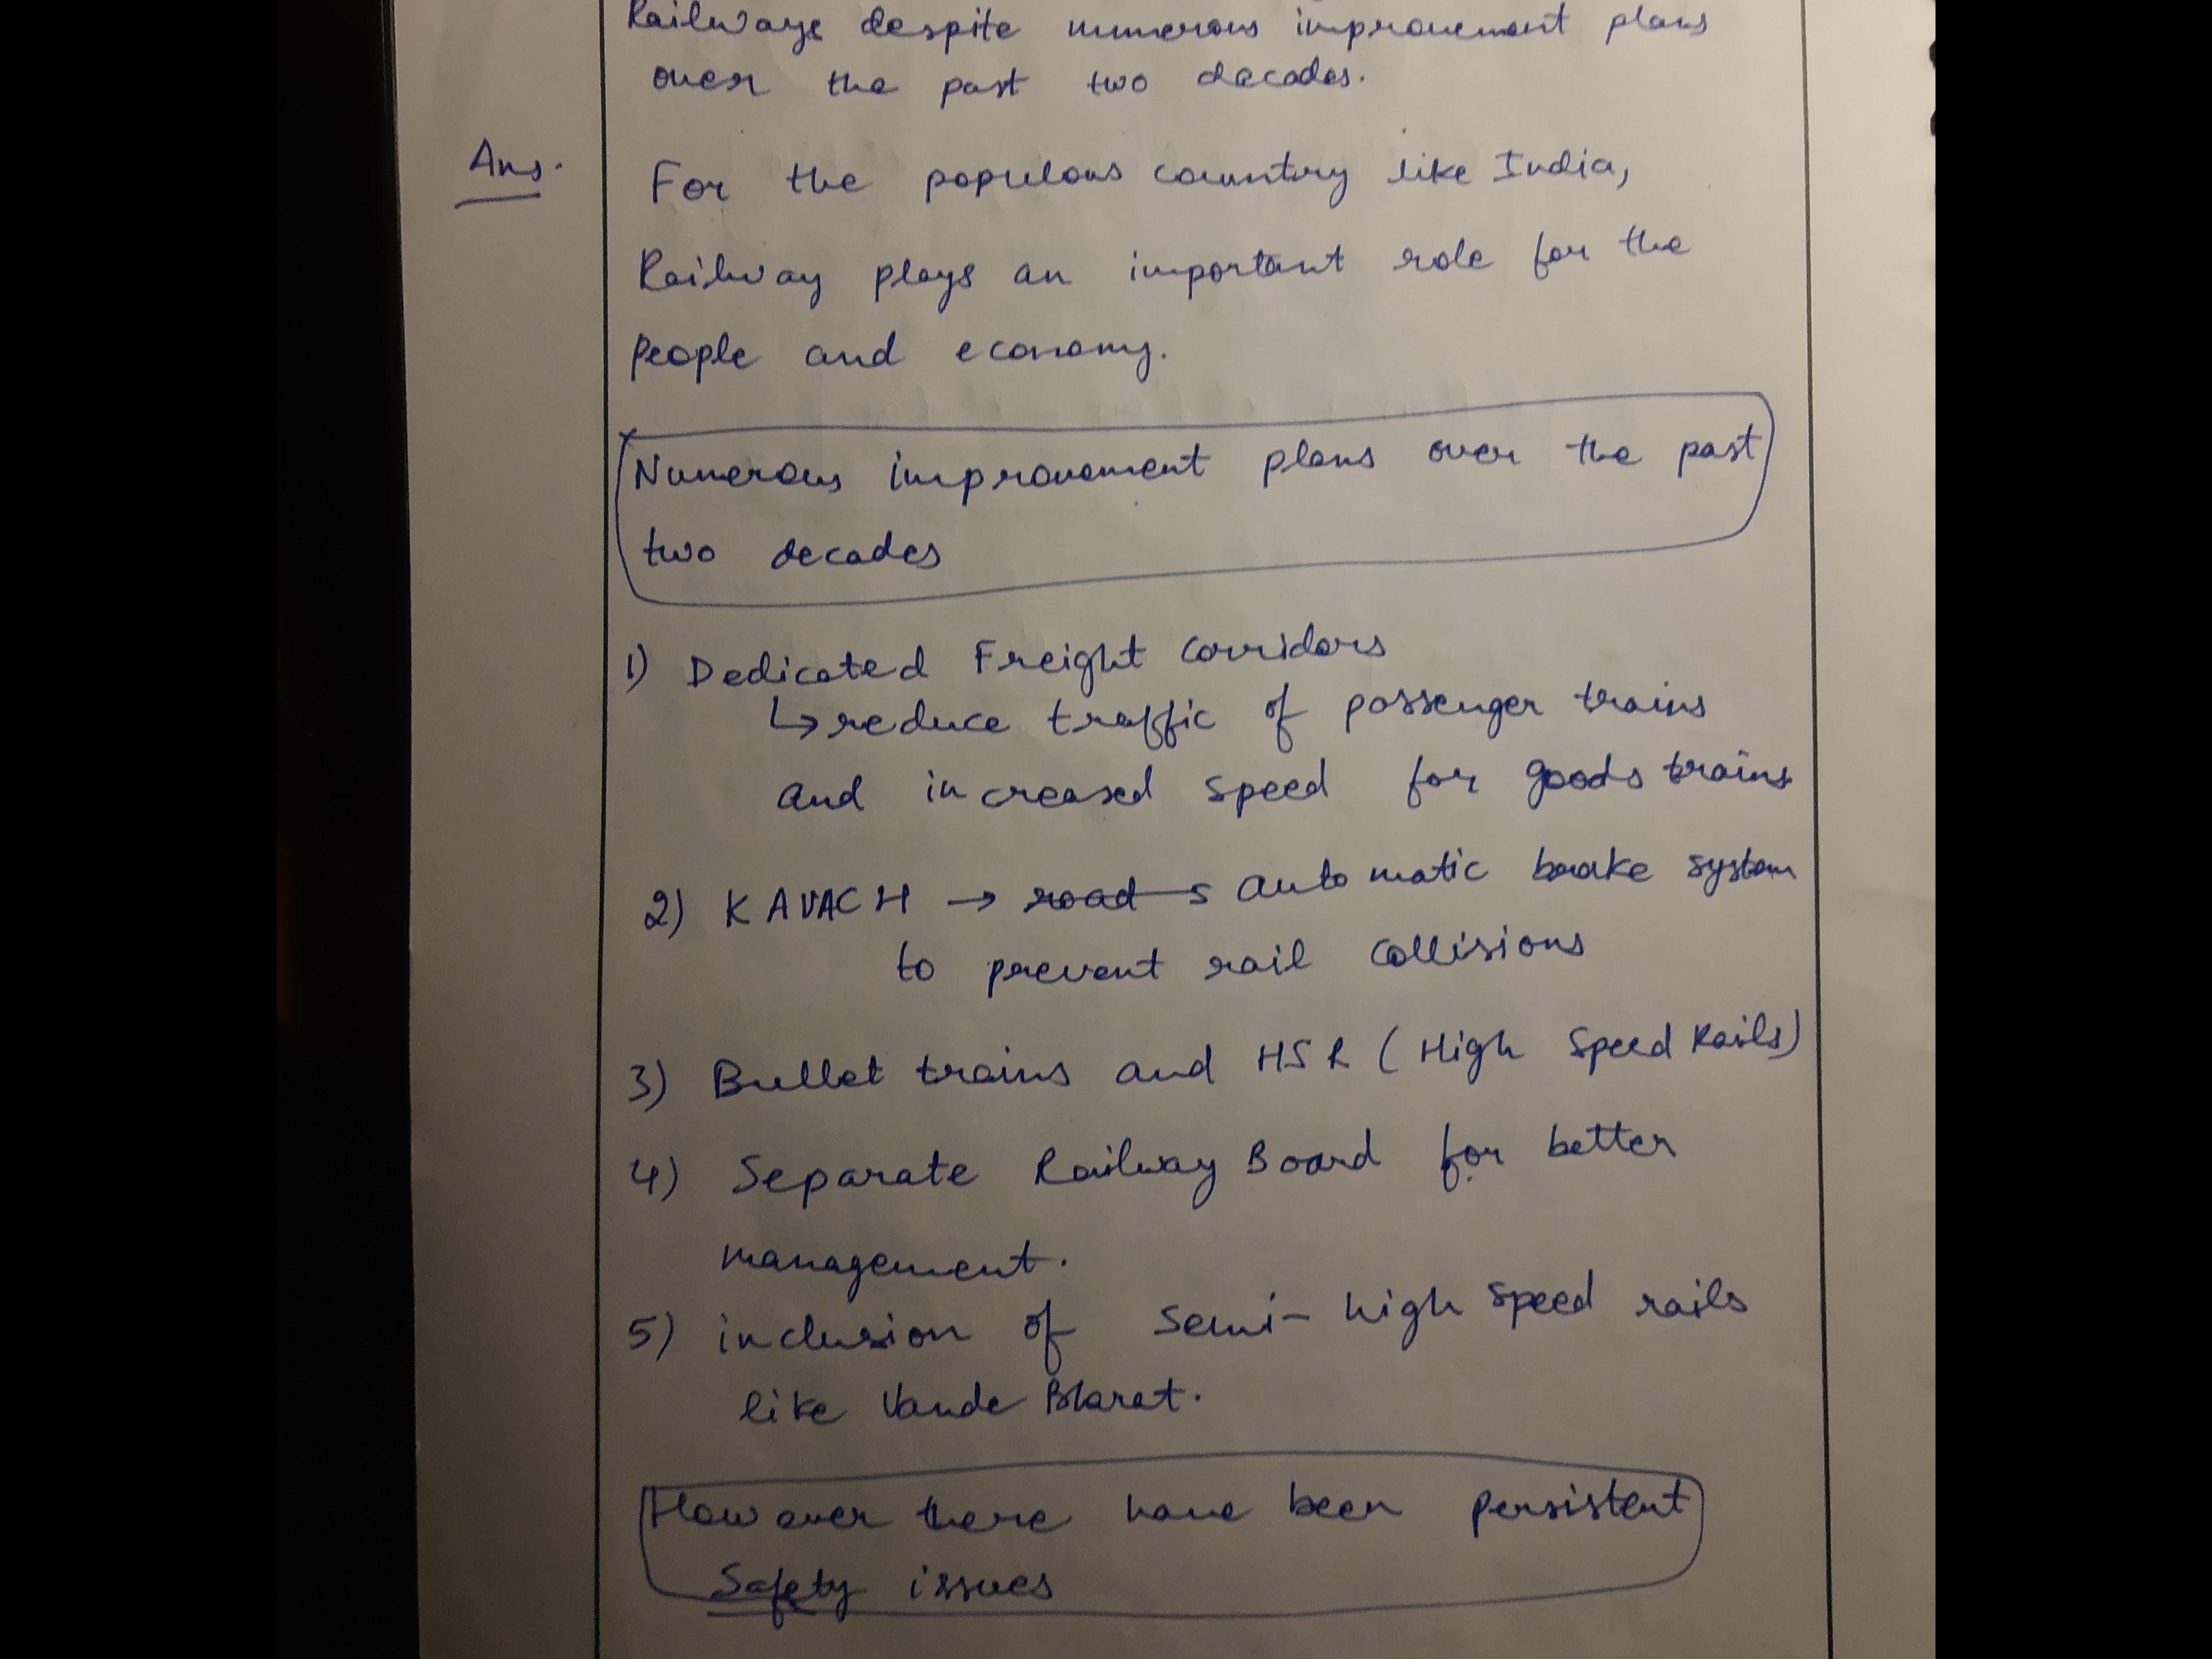 Railways despite numerous improvement plans
over the past two decades.
Ans.
For the populous country like India,
Railway plays an important role for the
people and economy.
Numerous improvement plans over the past
two decades
1) Dedicated Freight Corridors
↳ reduce traffic of passenger trains
and increased speed for goods trains
2) KAVACH → road s automatic brake system
to prevent rail collisions
3) Bullet trains and HSR (High Speed Rails)
4) Separate Railway Board for better
management.
5) inclusion of semi-high speed rails
like Vande Bharat.
However there have been persistent
Safety issues